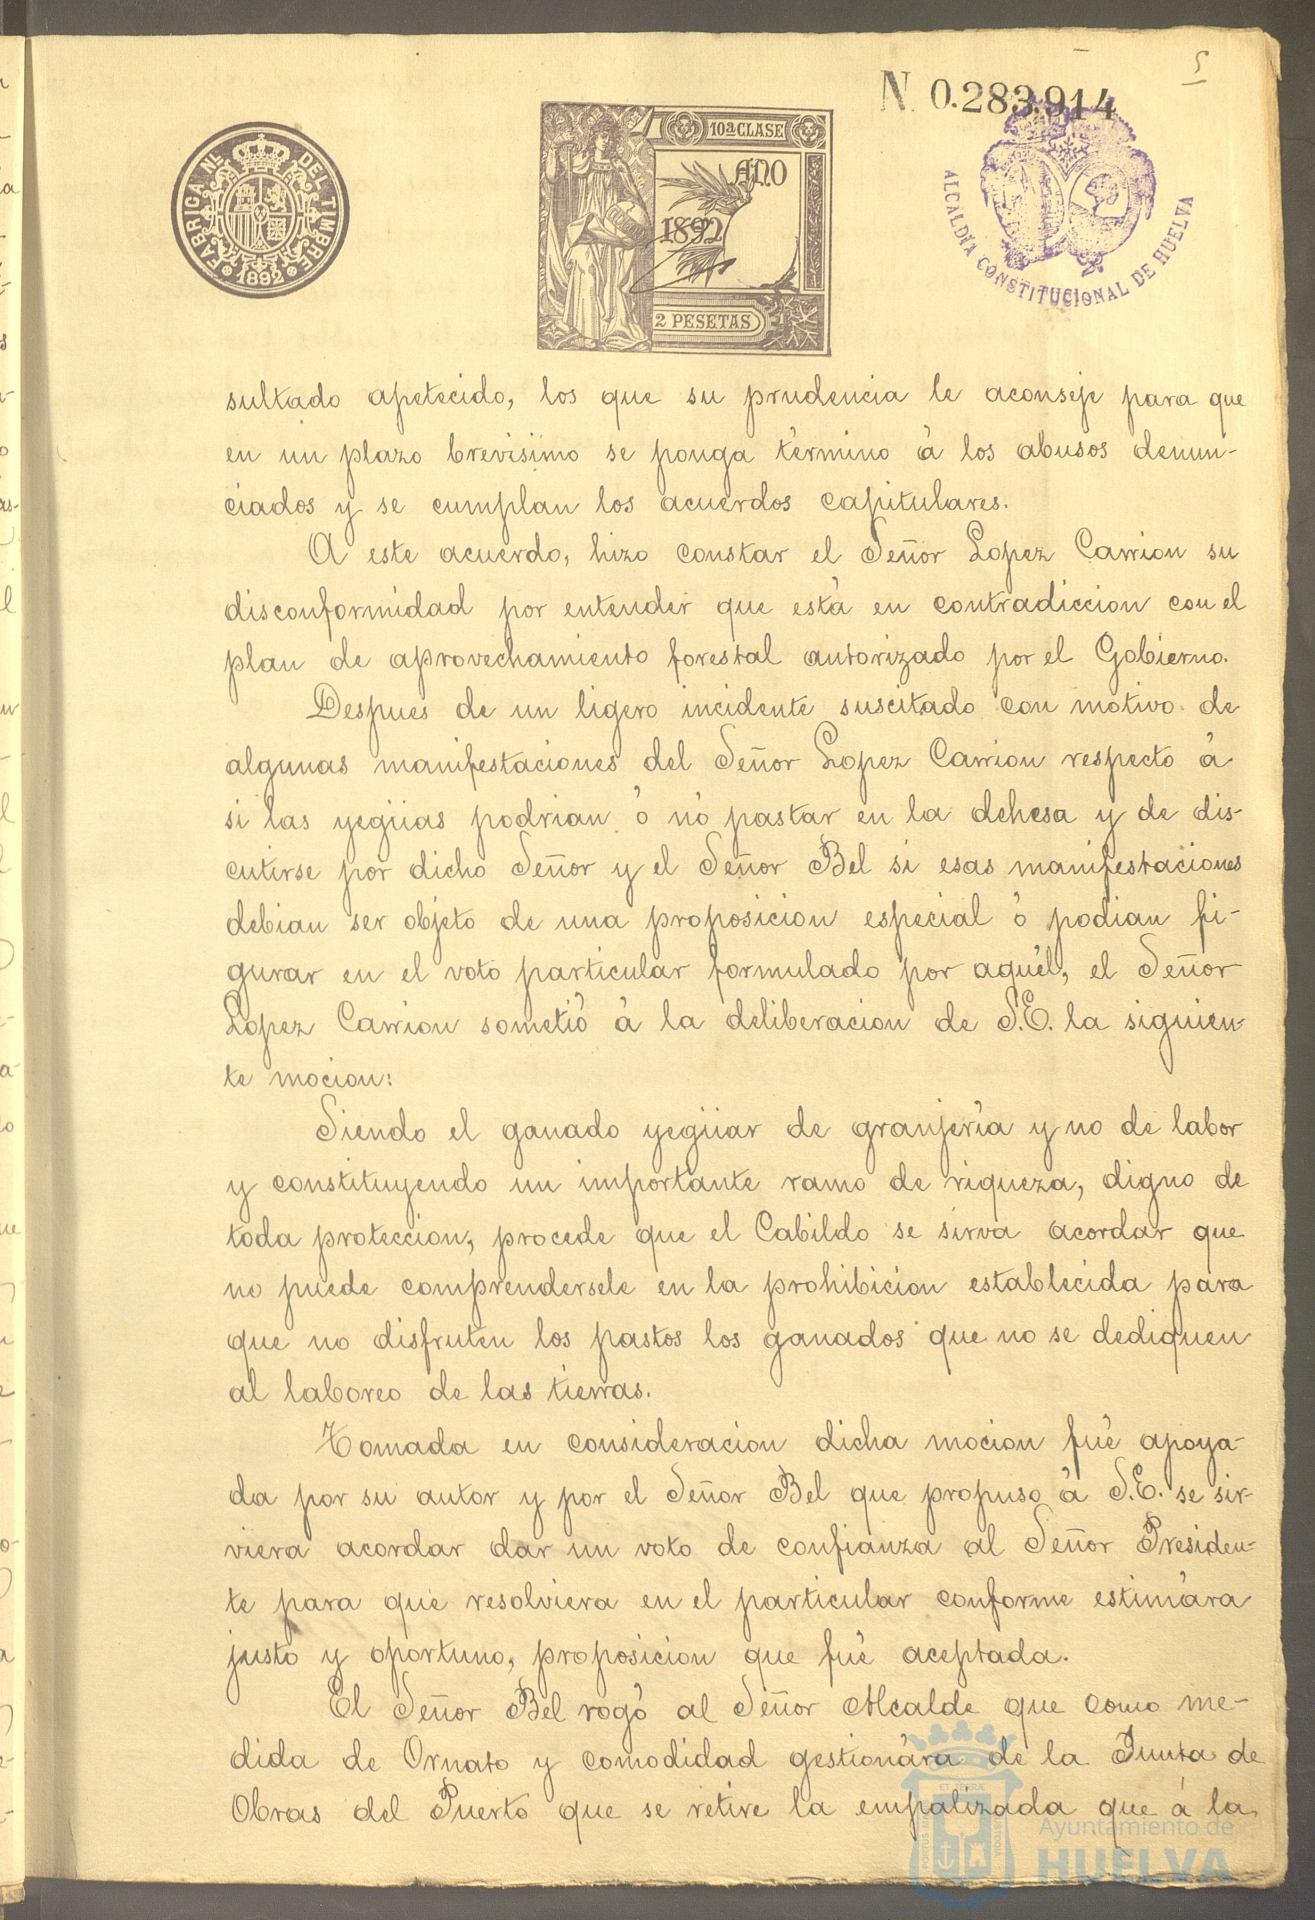 5
N. 0.283.914
FABRICA NL. DEL TIMBRE
1892
10ª CLASE
AÑO
1892
2 PESETAS
ALCALDIA CONSTITUCIONAL DE HUELVA
sultado apetecido, los que su prudencia le aconseje para que
en un plazo brevisimo se ponga término á los abusos denun-
ciados y se cumplan los acuerdos capitulares.
A este acuerdo, hizo constar el Señor Lopez Carrion su
disconformidad por entender que está en contradiccion con el
plan de aprovechamiento forestal autorizado por el Gobierno.
Despues de un ligero incidente suscitado con motivo de
algunas manifestaciones del Señor Lopez Carrion respecto á
si las yegüas podrian ó nó pastar en la dehesa y de dis-
cutirse por dicho Señor y el Señor Bel si esas manifestaciones
debian ser objeto de una proposicion especial ó podian fi-
gurar en el voto particular formulado por aquél, el Señor
Lopez Carrion sometió á la deliberacion de S.E. la siguien-
te mocion:
Siendo el ganado yegüar de granjería y no de labor
y constituyendo un importante ramo de riqueza, digno de
toda proteccion, procede que el Cabildo se sirva acordar que
no puede comprendersele en la prohibicion establecida para
que no disfruten los pastos los ganados que no se dediquen
al laboreo de las tierras.
Tomada en consideracion dicha mocion fué apoya-
da por su autor y por el Señor Bel que propuso á S.E. se sir-
viera acordar dar un voto de confianza al Señor Presiden-
te para que resolviera en el particular conforme estimára
justo y oportuno, proposicion que fué aceptada.
El Señor Bel rogó al Señor Alcalde que como me-
dida de Ornato y comodidad gestionára de la Junta de
Obras del Puerto que se retire la empalizada que á la
Ayuntamiento de
HUELVA